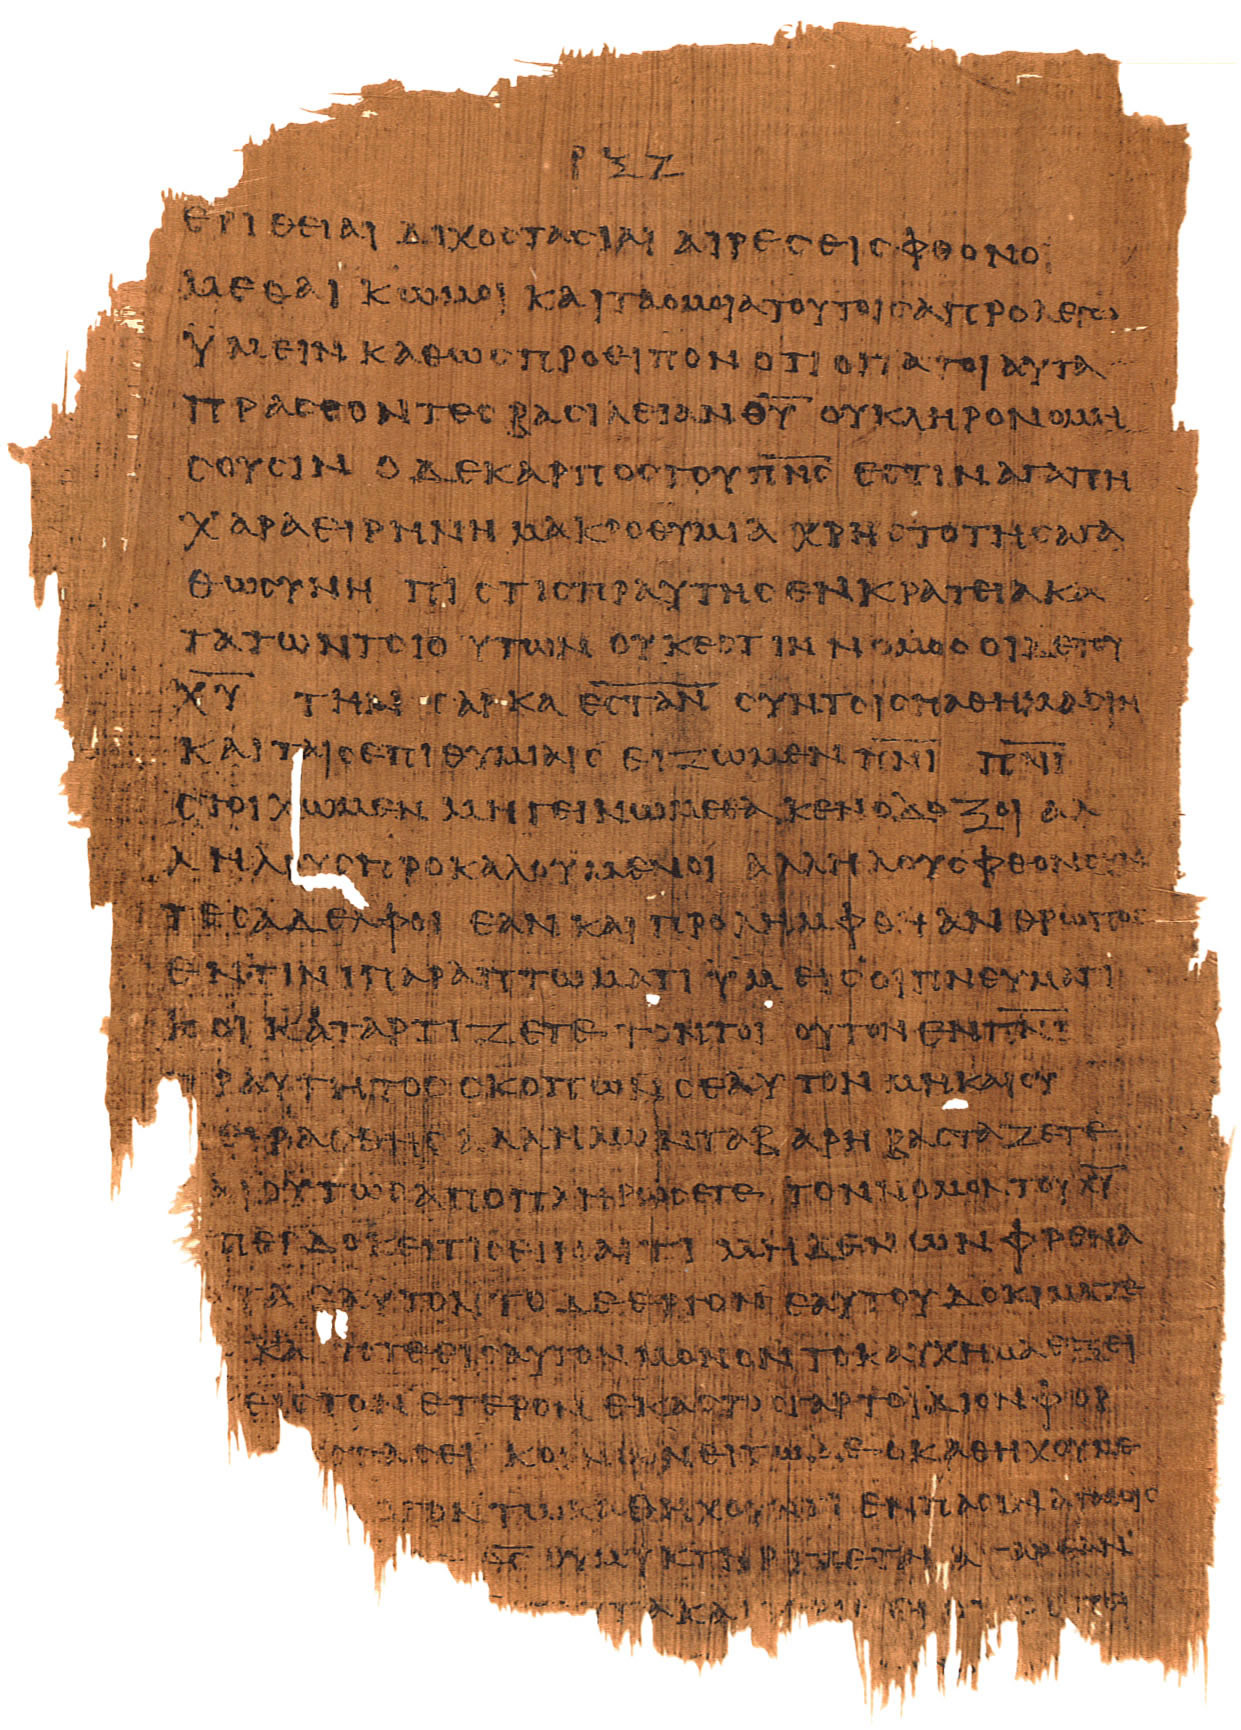 ΡΞΖ
ΕΡΙΘΕΙΑΙ ΔΙΧΟΣΤΑΣΙΑΙ ΑΙΡΕΣΕΙΣ ΦΘΟΝΟΙ
ΜΕΘΑΙ ΚΩΜΟΙ ΚΑΙ ΤΑ ΟΜΟΙΑ ΤΟΥΤΟΙΣ Α ΠΡΟΛΕΓΩ
ΥΜΕΙΝ ΚΑΘΩΣ ΠΡΟΕΙΠΟΝ ΟΤΙ ΟΙ ΤΑ ΤΟΙΑΥΤΑ
ΠΡΑΣΣΟΝΤΕΣ ΒΑΣΙΛΕΙΑΝ Θ̅Υ̅ ΟΥ ΚΛΗΡΟΝΟΜΗ
ΣΟΥΣΙΝ Ο ΔΕ ΚΑΡΠΟΣ ΤΟΥ Π̅Ν̅Σ̅ ΕΣΤΙΝ ΑΓΑΠΗ
ΧΑΡΑ ΕΙΡΗΝΗ ΜΑΚΡΟΘΥΜΙΑ ΧΡΗΣΤΟΤΗΣ ΑΓΑ
ΘΩΣΥΝΗ ΠΙΣΤΙΣ ΠΡΑΥΤΗΣ ΕΝΚΡΑΤΕΙΑ ΚΑ
ΤΑ ΤΩΝ ΤΟΙΟΥΤΩΝ ΟΥΚ ΕΣΤΙΝ ΝΟΜΟΣ ΟΙ ΔΕ ΤΟΥ
Χ̅Υ̅ ΤΗΝ ΣΑΡΚΑ Ε̅Σ̅Τ̅Α̅Ν̅ ΣΥΝ ΤΟΙΣ ΠΑΘΗΜΑΣΙΝ
ΚΑΙ ΤΑΙΣ ΕΠΙΘΥΜΙΑΙΣ ΕΙ ΖΩΜΕΝ Π̅Ν̅Ι̅ Π̅Ν̅Ι̅
ΣΤΟΙΧΩΜΕΝ ΜΗ ΓΕΙΝΩΜΕΘΑ ΚΕΝΟΔΟΞΟΙ ΑΛ
ΛΗΛΟΥΣ ΠΡΟΚΑΛΟΥΜΕΝΟΙ ΑΛΛΗΛΟΥΣ ΦΘΟΝΟΥΝ
ΤΕΣ ΑΔΕΛΦΟΙ ΕΑΝ ΚΑΙ ΠΡΟΛΗΜΦΘΗ ΑΝΘΡΩΠΟΣ
ΕΝ ΤΙΝΙ ΠΑΡΑΠΤΩΜΑΤΙ ΥΜΕΙΣ ΟΙ ΠΝΕΥΜΑΤΙ
ΚΟΙ ΚΑΤΑΡΤΙΖΕΤΕ ΤΟΝ ΤΟΙΟΥΤΟΝ ΕΝ Π̅Ν̅Ι̅
ΡΑΥΤΗΤΟΣ ΣΚΟΠΩΝ ΣΕΑΥΤΟΝ ΜΗ ΚΑΙ ΣΥ
ΕΙΡΑΣΘΗΣ ΑΛΛΗΛΩΝ ΤΑ ΒΑΡΗ ΒΑΣΤΑΖΕΤΕ
ΑΙ ΟΥΤΩΣ ΑΠΟΠΛΗΡΩΣΕΤΕ ΤΟΝ ΝΟΜΟΝ ΤΟΥ Χ̅Υ̅
ΕΙ ΔΟΚΕΙ ΤΙΣ ΕΙΝΑΙ ΤΙ ΜΗΔΕΝ ΩΝ ΦΡΕΝΑ
ΤΑ ΕΑΥΤΟΝ ΤΟ ΔΕ ΕΡΓΟΝ ΕΑΥΤΟΥ ΔΟΚΙΜΑΖΕ
ΕΙΣ ΕΑΥΤΟΝ ΜΟΝΟΝ ΤΟ ΚΑΥΧΗΜΑ ΕΞΕΙ
ΕΙΣ ΤΟΝ ΕΤΕΡΟΝ ΕΚΑΣΤΟΣ ΓΑΡ ΤΟ ΙΔΙΟΝ ΦΟΡ
ΤΑΣΕΙ ΚΟΙΝΩΝΕΙΤΩ ΔΕ Ο ΚΑΤΗΧΟΥΜΕ
ΓΟΝ ΤΩ ΚΑΤΗΧΟΥΝΤΙ ΕΝ ΠΑΣΙΝ ΑΓΑΘΟΙΣ
Θ̅Σ̅ ΟΥ ΜΥΚΤΗΡΙΖΕΤΑΙ
ΚΑΙ